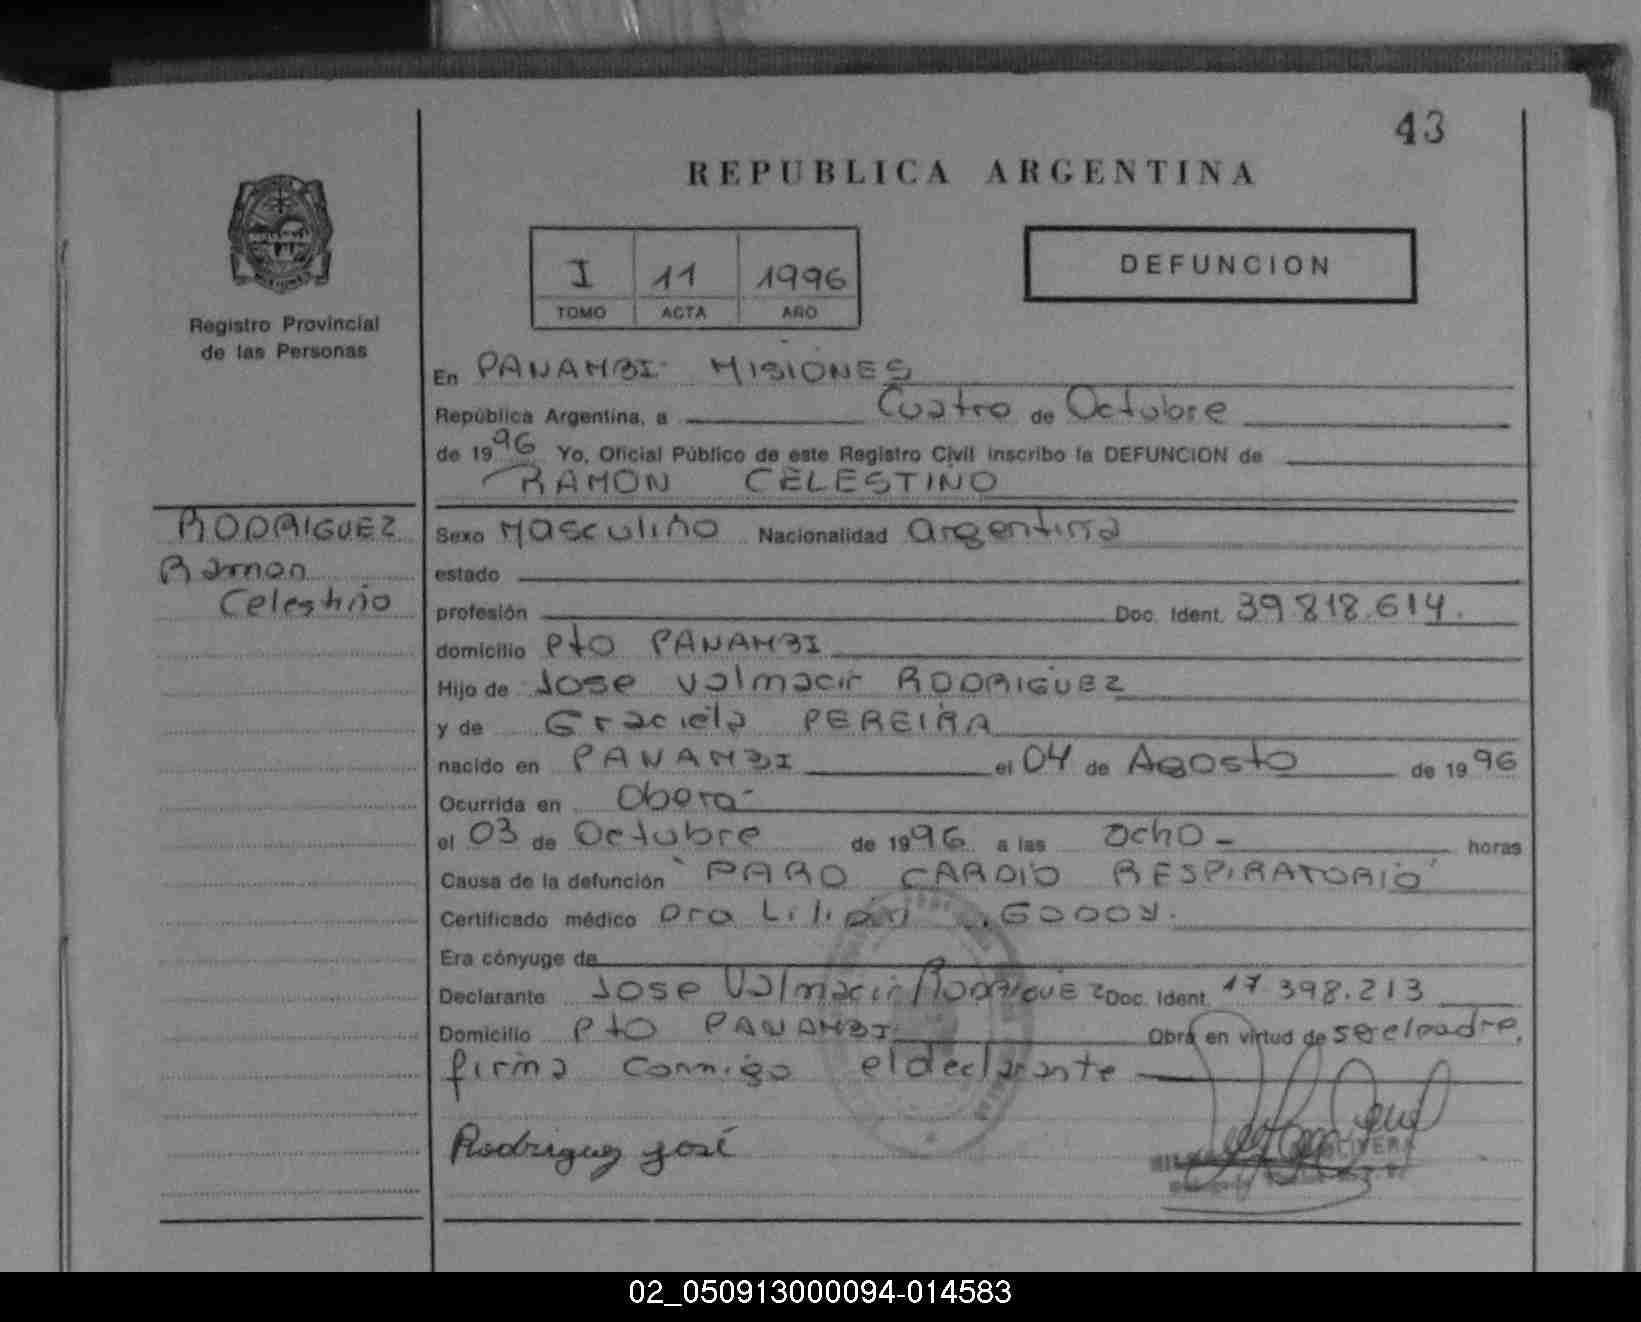 43
REPUBLICA ARGENTINA
I 11 1996
TOMO ACTA AÑO
DEFUNCION
Registro Provincial
de las Personas
En PANAMBI MISIONES
República Argentina, a Cuatro de Octubre
de 1996 Yo, Oficial Público de este Registro Civil inscribo la DEFUNCION de
RAMON CELESTINO
RODRIGUEZ
Ramon
Celestino
Sexo Masculino Nacionalidad argentina
estado
profesión Doc. Ident. 39.818.614.
domicilio Pto PANAMBI
Hijo de Jose Valmacir RODRIGUEZ
y de Graciela PEREIRA
nacido en PANAMBI el 04 de Agosto de 1996
Ocurrida en Obera
el 03 de Octubre de 1996 a las ocho horas
Causa de la defunción "PARO CARDIO RESPIRATORIO"
Certificado médico Dra Lilian GODOY.
Era cónyuge de
Declarante Jose Valmacir RODRIGUEZ Doc. Ident. 17.398.213
Domicilio Pto PANAMBI Obra en virtud de ser el padre.
firma conmigo el declarante
Rodriguez José
OLIVERA
02_050913000094-014583